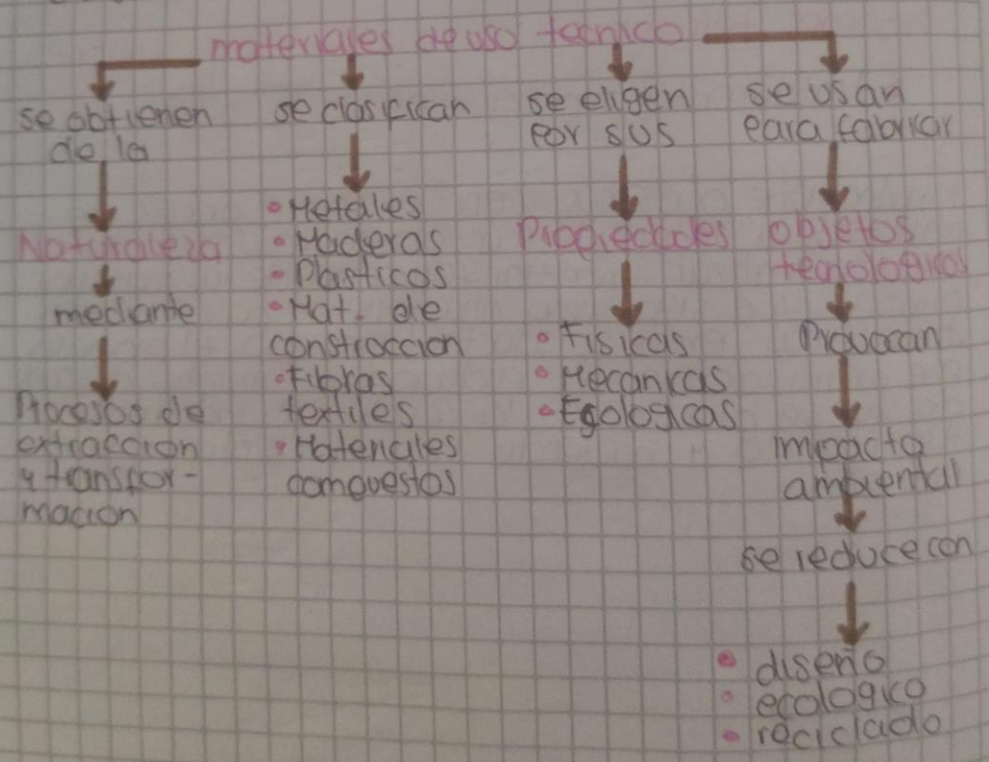 materiales de uso tecnico
se obtienen
de la
Naturaleza
mediante
Procesos de
extraccion
y transfor-
macion
se clasifican
• Metales
• Maderas
• Plasticos
• Mat. de
construccion
• Fibras
textiles
• Materiales
compuestos
se eligen
por sus
Propiedades
• Fisicas
• Mecanicas
• Egologicas
se usan
para fabricar
objetos
tecnologicos
Provocan
impacto
ambiental
se reduce con
• diseño
• ecologico
• reciclado